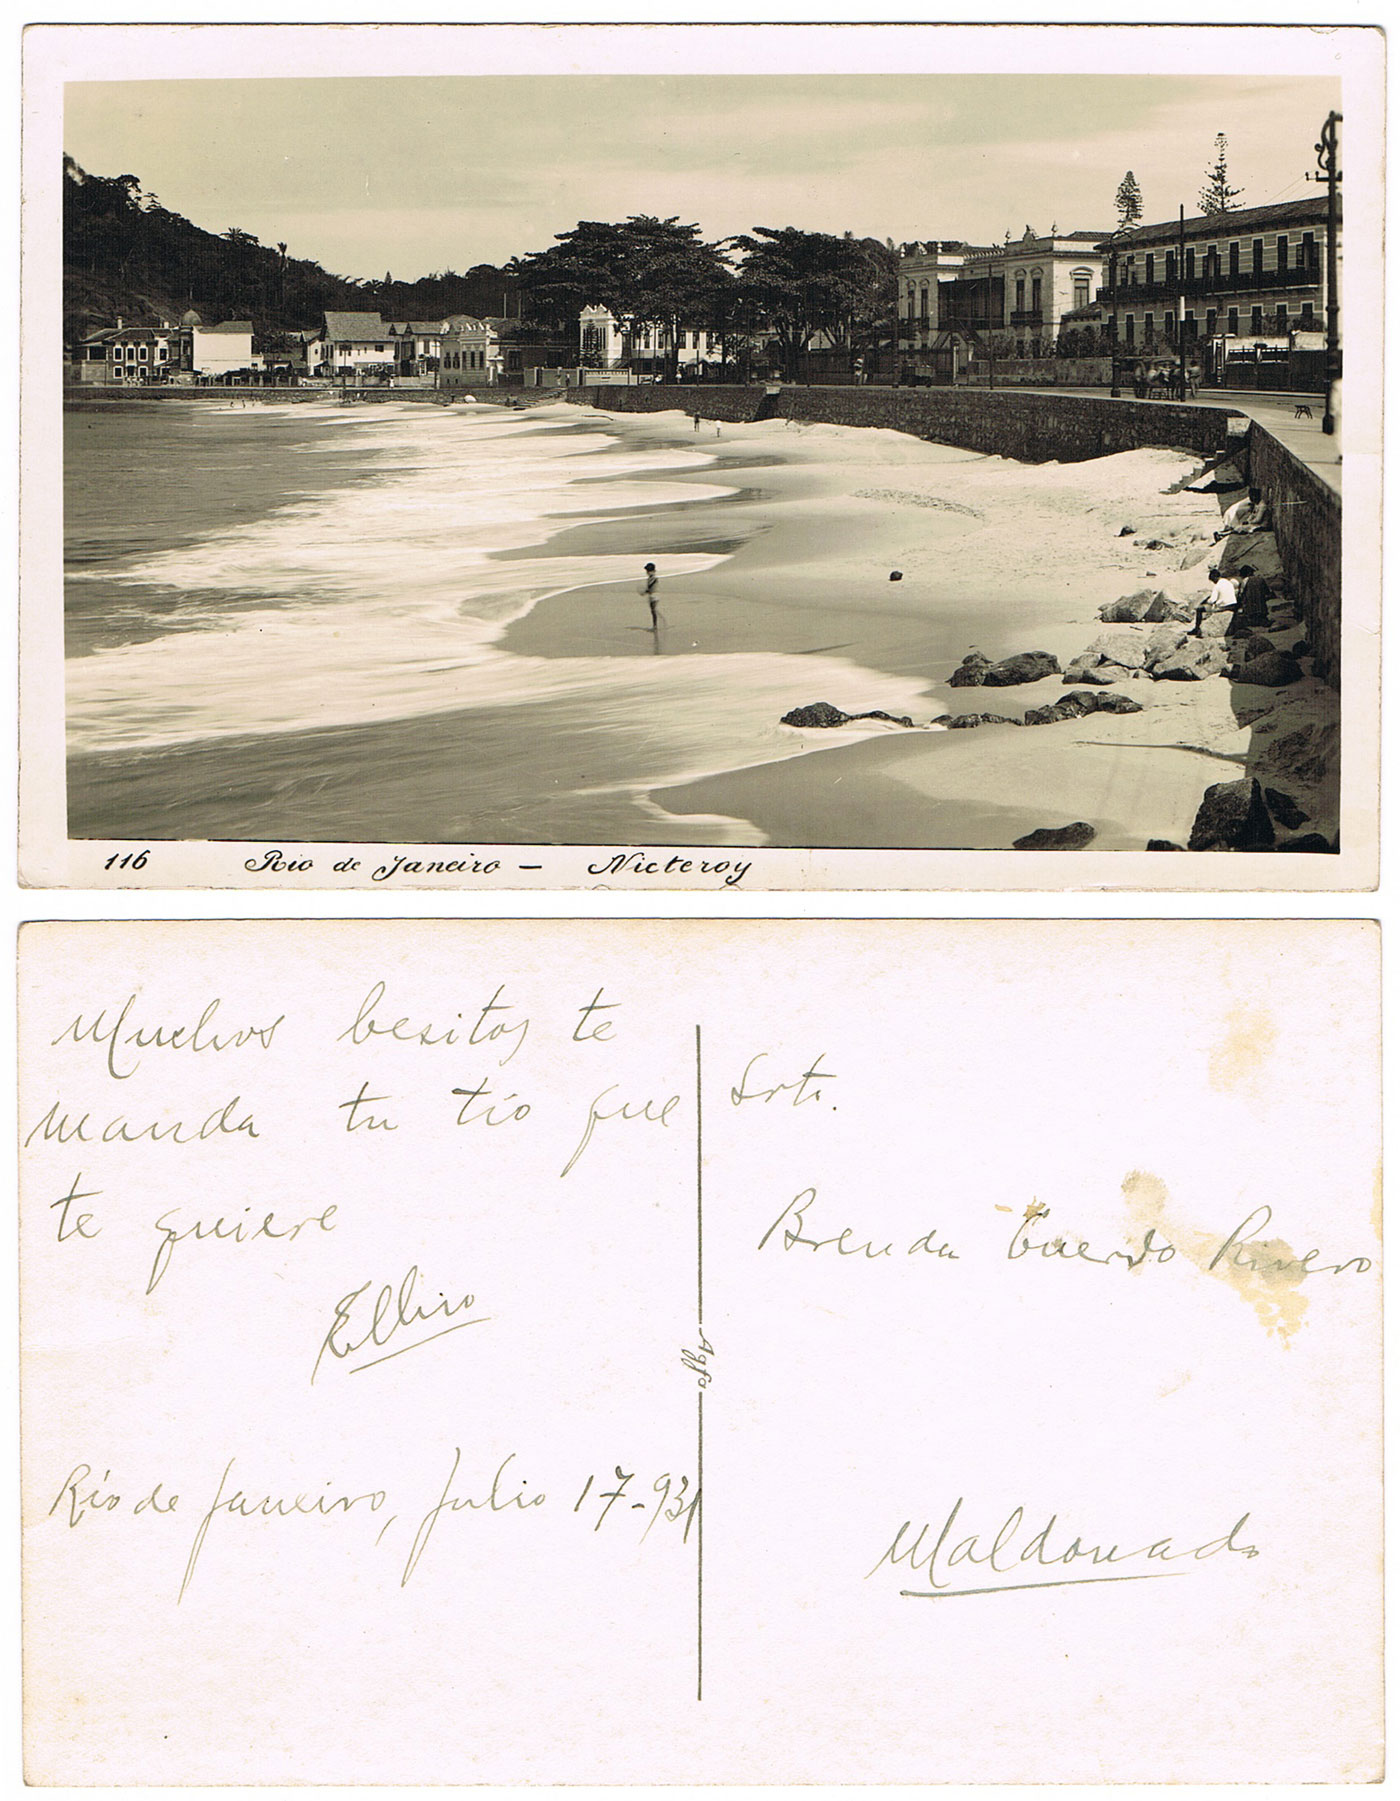 116 Rio de Janeiro — Nicteroy
Muchos besitos te
manda tu tío que
te quiere
Rio de Janeiro, Julio 17-931
Agfa
Srta.
Brenda Cuervo Rivero
Maldonado